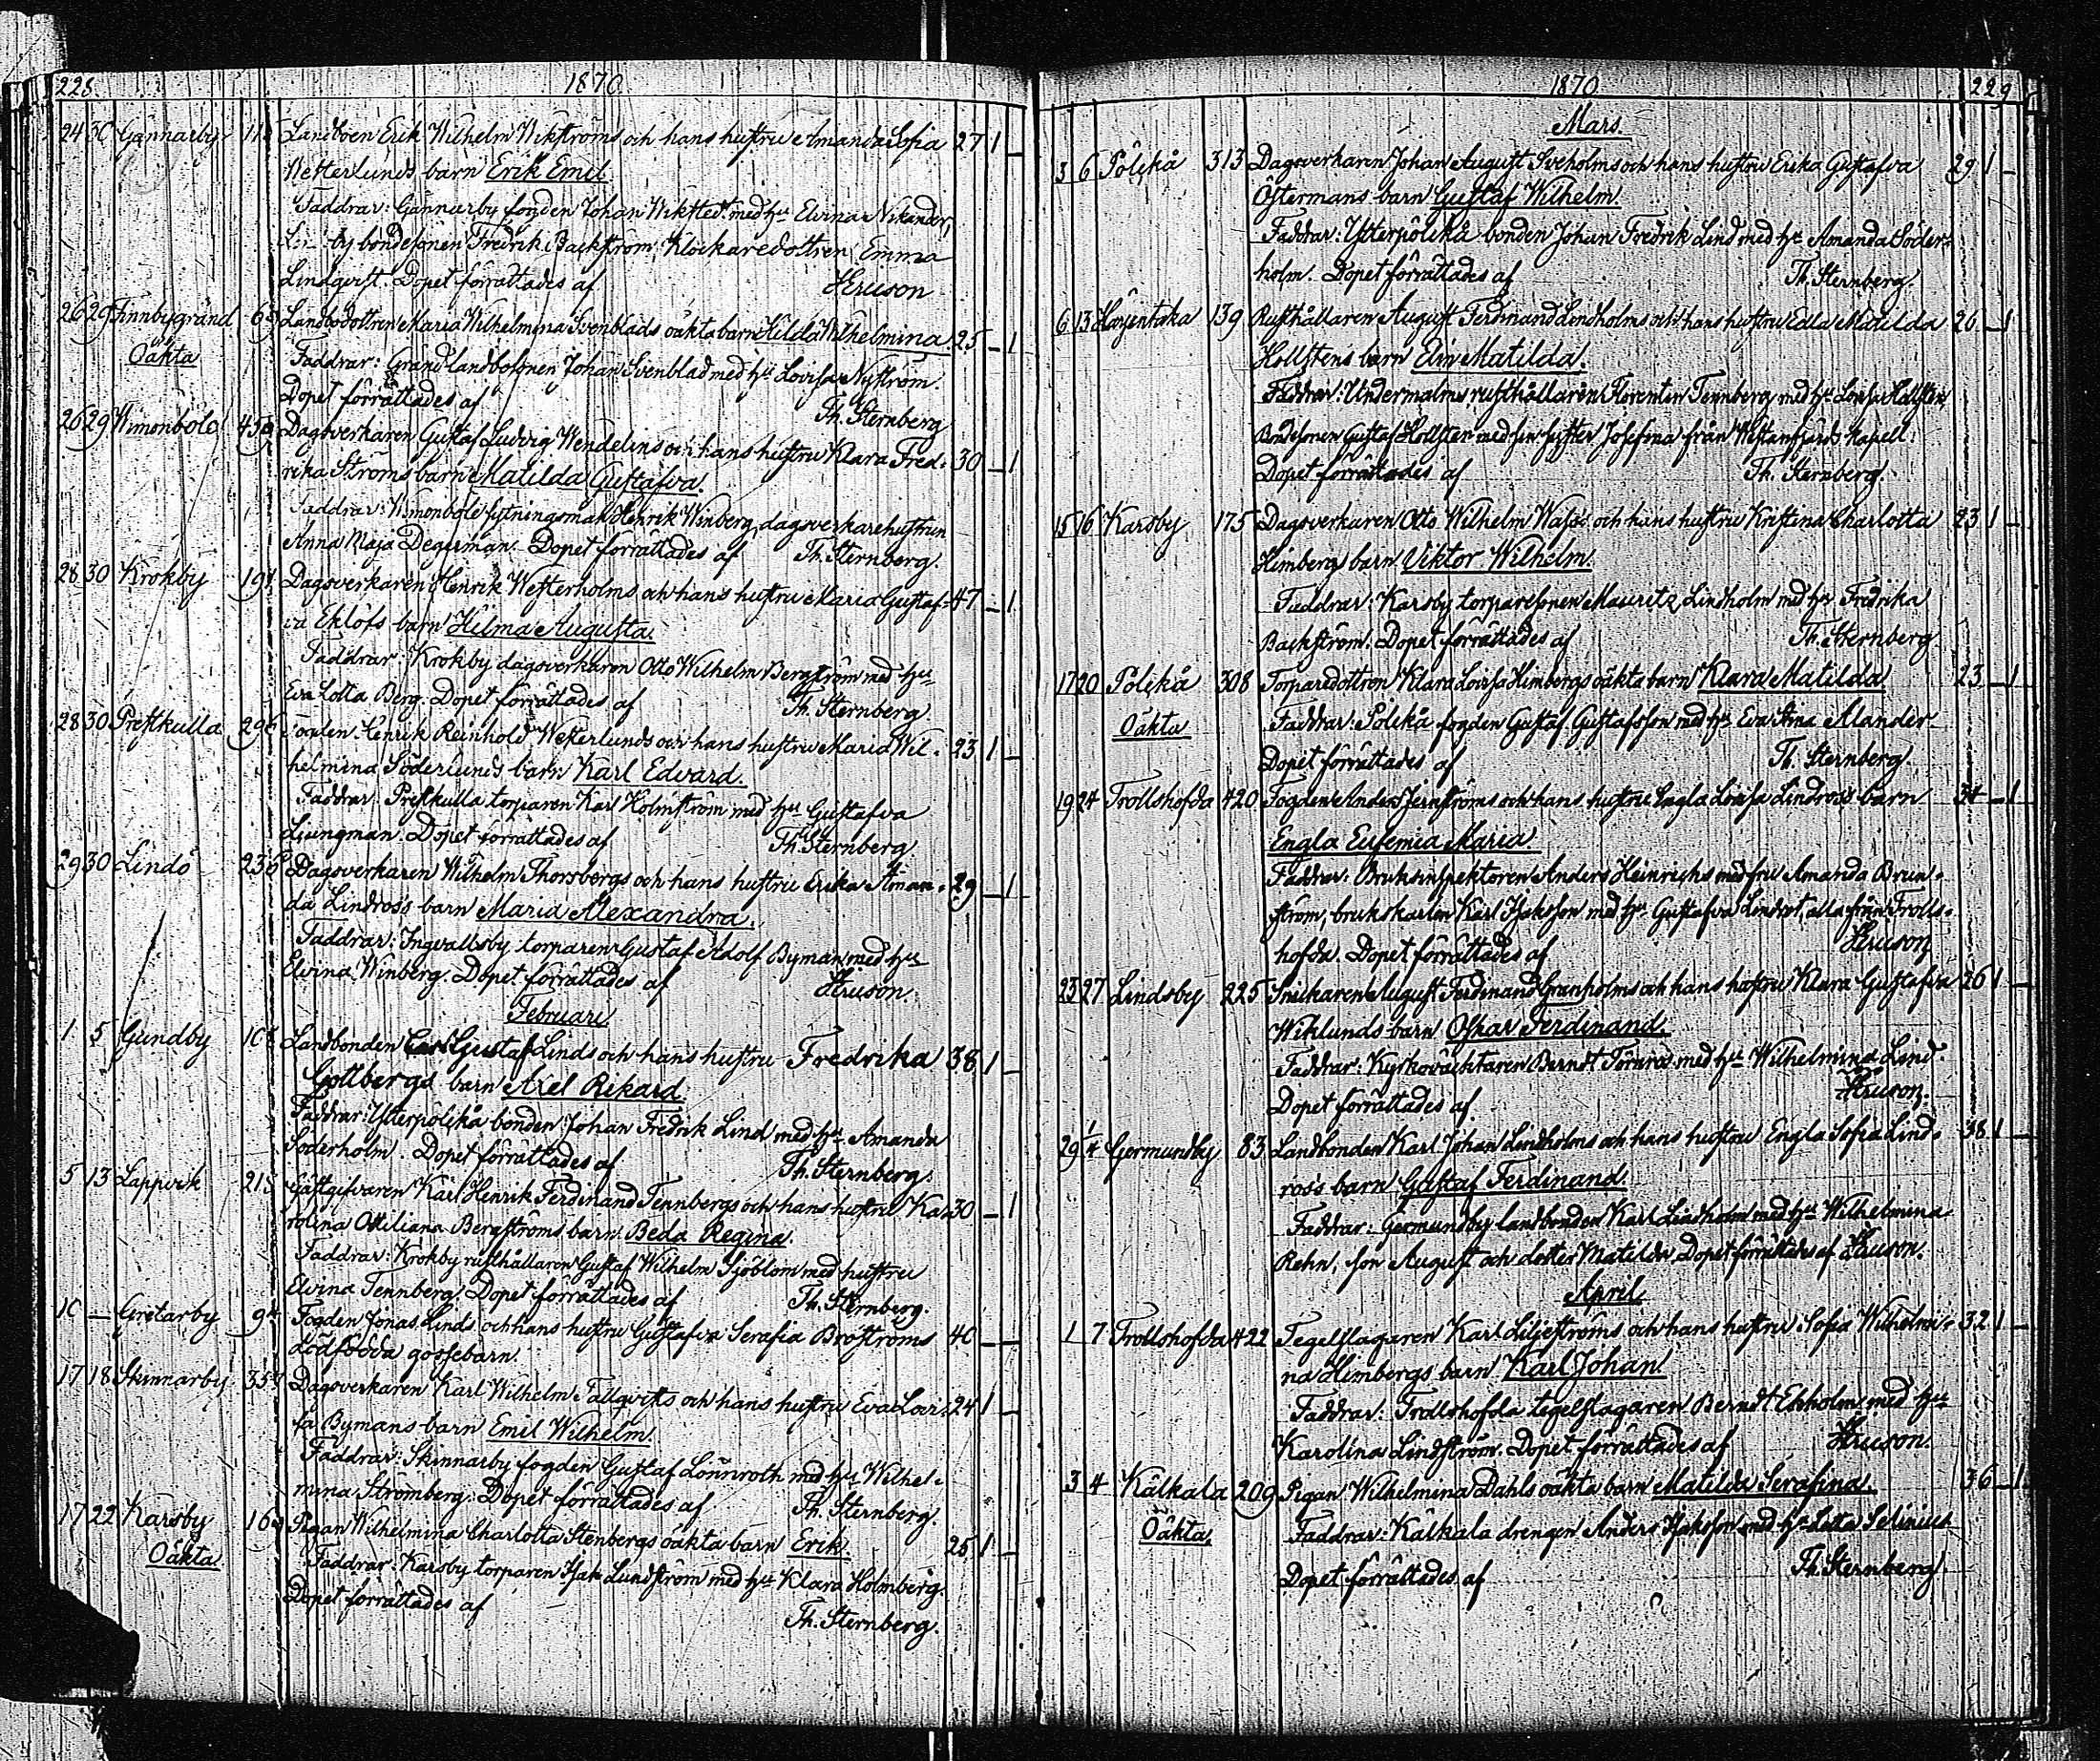 228 1870
24 30 Gännarby 11 Landboen Erik Wilhelm Wikströms och hans hustru Amanda Sofia 27 1 –
Westerlunds barn Erik Emil
Faddrar: Gännarby fogden Johan Wiksted med hu Elvina Nikander,
by bondesonen Fredrik Backström, Klockaredottren Emma
Lindqvist. Dopet förrättades af Heruson
26 29 Finnbygränd 6 Landbodottren Maria Wilhelmina Svenblads oäkta barn Hilda Wilhelmina. 25 – 1
Oäkta Faddrar: Gränd landbosonen Johan Svenblad med hu Lovisa Nyström.
Dopet förrättades af Th. Sternberg
26 29 Wimonböle 45 Dagsverkaren Gustaf Ludvig Wendelins och hans hustru Klara Fred- 30 – 1
rika Ströms barn Matilda Gustafva.
Faddrar: Wimonböle sytningsman Henrik Winberg, dagsverkarehustrun
Anna Maja Degerman. Dopet förrättades af Th. Sternberg.
28 30 Krokby 191 Dagsverkaren Henrik Westerholms och hans hustru Maria Gustaf- 47 – 1
va Eklöfs barn Hilma Augusta.
Faddrar: Krokby dagsverkaren Otto Wilhelm Bergström med hu
Eva Lotta Berg. Dopet förrättades af Th. Sternberg.
28 30 Prestkulla 296 Fogden Henrik Reinhold Westerlunds och hans hustru Maria Wil- 23 1 –
helmina Söderlunds barn Karl Edvard.
Faddrar: Prestkulla torparen Karl Holmström med hu Gustafva
Ljungman. Dopet förrättades af Th. Sternberg.
29 30 Lindö 236 Dagsverkaren Wilhelm Thorsbergs och hans hustru Erika Aman- 29 – 1
da Lindroos barn Maria Alexandra.
Faddrar: Ingvallsby torparen Gustaf Adolf Byman med hu
Elvina Winberg. Dopet förrättades af Heruson.
Februari
1 5 Gundby 10 Landbonden Carl Gustaf Linds och hans hustru Fredrika 38 1 –
Gottbergs barn Axel Rikard.
Faddrar: Ysterpölikå bonden Johan Fredrik Lind med hu Amanda
Söderholm. Dopet förrättades af Th. Sternberg.
5 13 Lappvik 215 Gästgifvaren Karl Henrik Ferdinand Tennbergs och hans hustru Ka- 30 – 1
rolina Ottiliana Bergströms barn Beda Regina.
Faddrar: Krokby rusthållaren Gustaf Wilhelm Sjöblom med hustru
Elvina Tennberg. Dopet förrättades af Th. Sternberg.
10 – Gretarby 9 Fogden Jonas Linds och hans hustru Gustafva Serafia Broströms 40 – –
dödfödda gossebarn.
17 18 Skinnarby 357 Dagsverkaren Karl Wilhelm Tallqvists och hans hustru Eva Lovi- 24 1 –
sa Bymans barn Emil Wilhelm.
Faddrar: Skinnarby fogden Gustaf Lönnroth med hu Wilhel-
mina Strömberg. Dopet förrättades af Th. Sternberg.
17 22 Karsby 169 Pigan Wilhelmina Charlotta Stenbergs oäkta barn Erik. 25 1 –
Oäkta Faddrar: Karsby torparen Isak Lundström med hu Klara Holmberg.
Dopet förrättades af Th. Sternberg.
1870 229
Mars.
3 6 Pölikå 313 Dagsverkaren Johan August Sveholms och hans hustru Erika Gustafva 29 1 –
Östermans barn Gustaf Wilhelm.
Faddrar: Ysterpölikå bonden Johan Fredrik Lind med hu Amanda Söder-
holm. Dopet förrättades af Th. Sternberg.
6 13 139 Rusthållaren August Ferdinand Lindholms och hans hustru Edla Matilda 26 – 1
Hollstens barn Elin Matilda.
Faddrar: Undermalms rusthållaren Florentin Tennberg med hu Lovisa Hollsten,
Bondesonen Gustaf Hollsten med sin syster Josefina från Westanfjärds Kapell.
Dopet förrättades af Th. Sternberg.
15 16 Karsby 175 Dagsverkaren Otto Wilhelm Wass's och hans hustru Kristina Charlotta 23 1 –
Himbergs barn Viktor Wilhelm.
Faddrar: Karsby torparesonen Mauritz Lindholm med hu Fredrika
Backström. Dopet förrättades af Th. Sternberg
17 20 Pölikå 308 Torparedottren Klara Lovisa Himbergs oäkta barn Klara Matilda 23 – 1
Oäkta Faddrar: Pölikå fogden Gustaf Gustafsson med hu Eva Stina Alander
Dopet förrättades af Th. Sternberg.
19 24 Trollshofda 420 Fogden Anders Jernströms och hans hustru Engla Lovisa Lindroos barn 34 – 1
Engla Eufemia Maria
Faddrar: Bruksinspektoren Anders Heinrichs med fru Amanda Brun-
ström, brukskarlen Karl Isaksson med hu Gustafva Lindrot, alla från Trolls-
hofda. Dopet förrättades af Heruson
23 27 Lindsby 225 Snickaren August Ferdinand Granholms och hans hustru Klara Gustafva 26 1 –
Wiklunds barn Oskar Ferdinand.
Faddrar: Kyrkoväktaren Berndt Törnroos med hu Wilhelmina Lind.
Dopet förrättades af Heruson.
29 1/4 Germundby 83 Landbonden Karl Johan Lindholms och hans hustru Engla Sofia Lind- 38 1 –
roos's barn Gustaf Ferdinand.
Faddrar: Germundby landbonden Karl Lindholm med hu Wilhelmina
Rehn, son August och dotter Matilda. Dopet förrättades af Heruson.
April.
1 7 Trollshofda 422 Tegelslagaren Karl Liljeströms och hans hustru Sofia Wilhelmi- 32 1 –
na Himbergs barn Karl Johan.
Faddrar: Trollshofda tegelslagaren Berndt Ekholm med hu
Karolina Lindström. Dopet förrättades af Heruson.
3 4 Kälkala 209 Pigan Wilhelmina Dahls oäkta barn Matilda Serafina. 36 – 1
Oäkta. Faddrar: Kälkala drengen Anders Isaksson med hu Lotta Selinius
Dopet förrättades af Th. Sternberg.